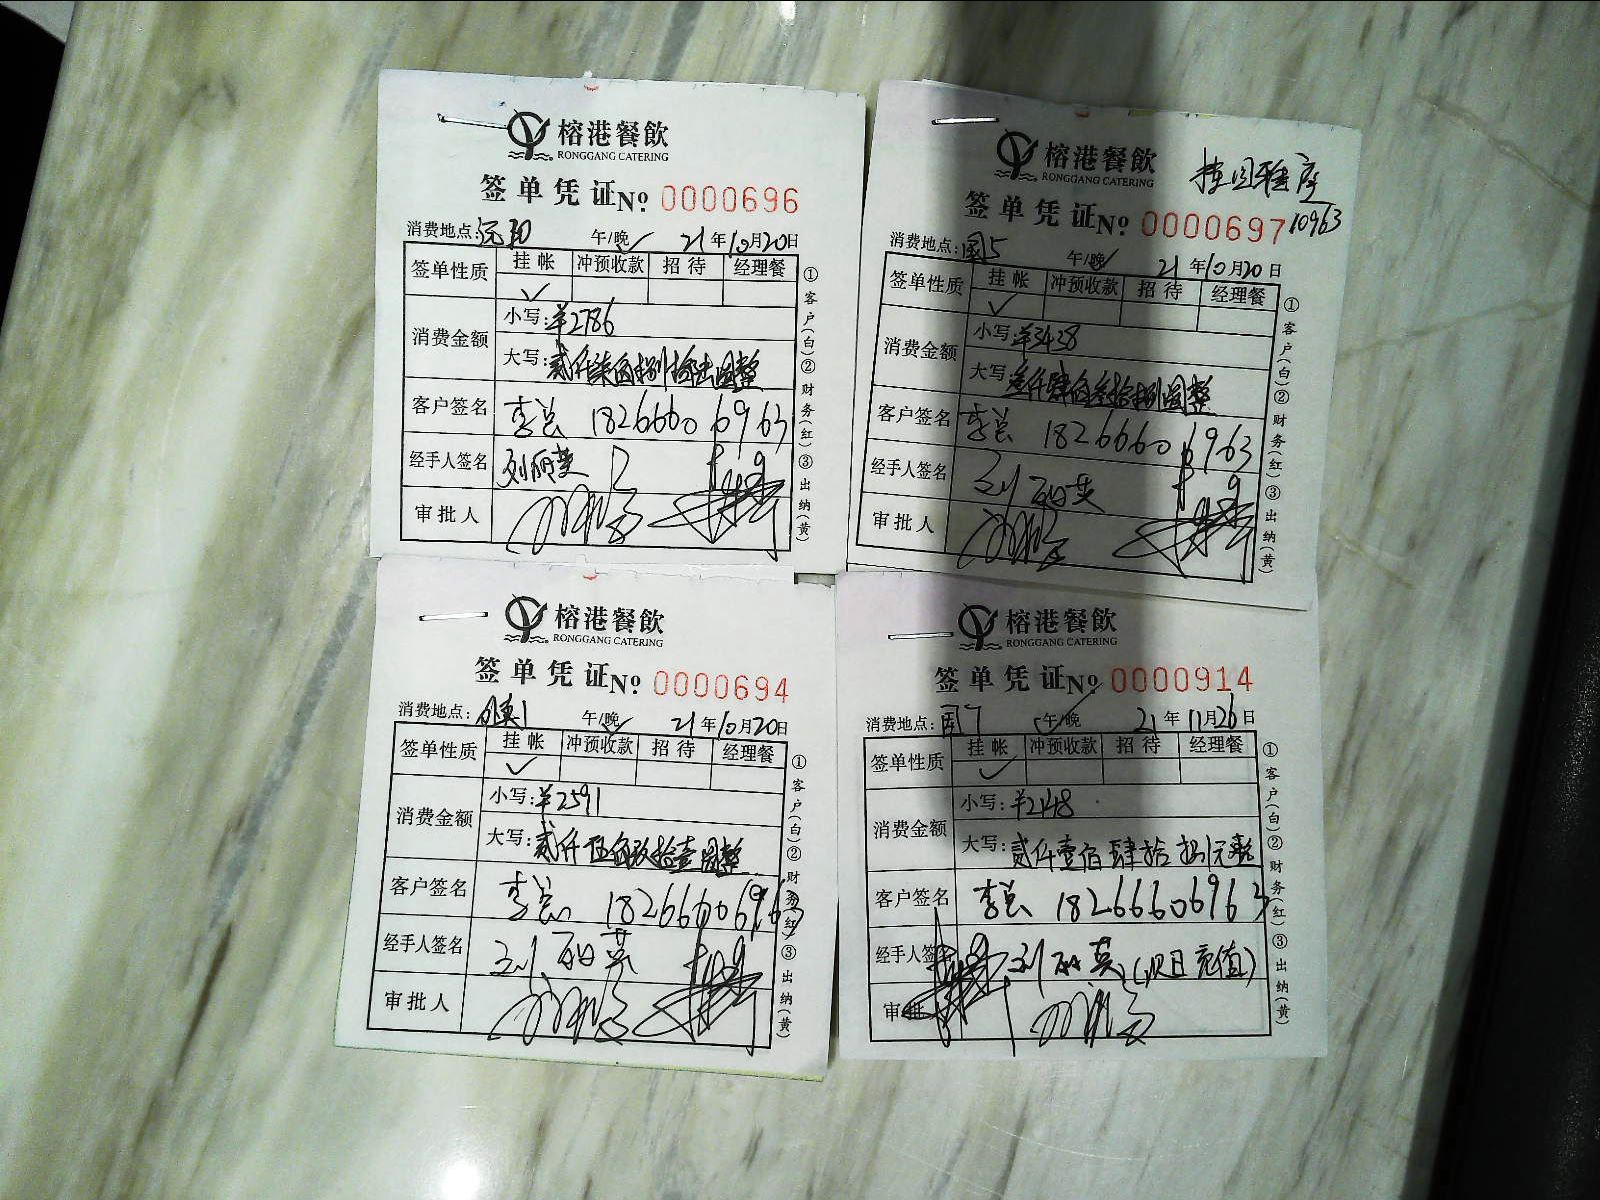 榕港餐飲
RONGGANG CATERING
签单凭证 Nº 0000696
消费地点: 午/晚 ✓ 21年10月20日
签单性质 挂帐 冲预收款 招待 经理餐
✓
消费金额 小写:¥2786
大写:贰仟柒佰捌拾陆圆整
客户签名 李总 18266606963
经手人签名 刘丽英
审批人
①客户(白)②财务(红)③出纳(黄)
榕港餐飲
RONGGANG CATERING
雅座
签单凭证 Nº 0000697 10963
消费地点:国5 午/晚 ✓ 21年10月20日
签单性质 挂帐 冲预收款 招待 经理餐
✓
消费金额 小写:¥3428
大写:叁仟肆佰贰拾捌圆整
客户签名 李总 18266606963
经手人签名 刘丽英
审批人
①客户(白)②财务(红)③出纳(黄)
榕港餐飲
RONGGANG CATERING
签单凭证 Nº 0000694
消费地点: 午/晚 ✓ 21年10月20日
签单性质 挂帐 冲预收款 招待 经理餐
✓
消费金额 小写:¥2591
大写:贰仟伍佰玖拾壹圆整
客户签名 李总 18266606963
经手人签名 刘丽英
审批人
①客户(白)②财务(红)③出纳(黄)
榕港餐飲
RONGGANG CATERING
签单凭证 Nº 0000914
消费地点:国7 午/晚 21年11月26日
签单性质 挂帐 冲预收款 招待 经理餐
✓
消费金额 小写:¥2148
大写:贰仟壹佰肆拾捌元整
客户签名 李总 18266606963
经手人签名 刘丽英(次日充值)
审批
①客户(白)②财务(红)③出纳(黄)